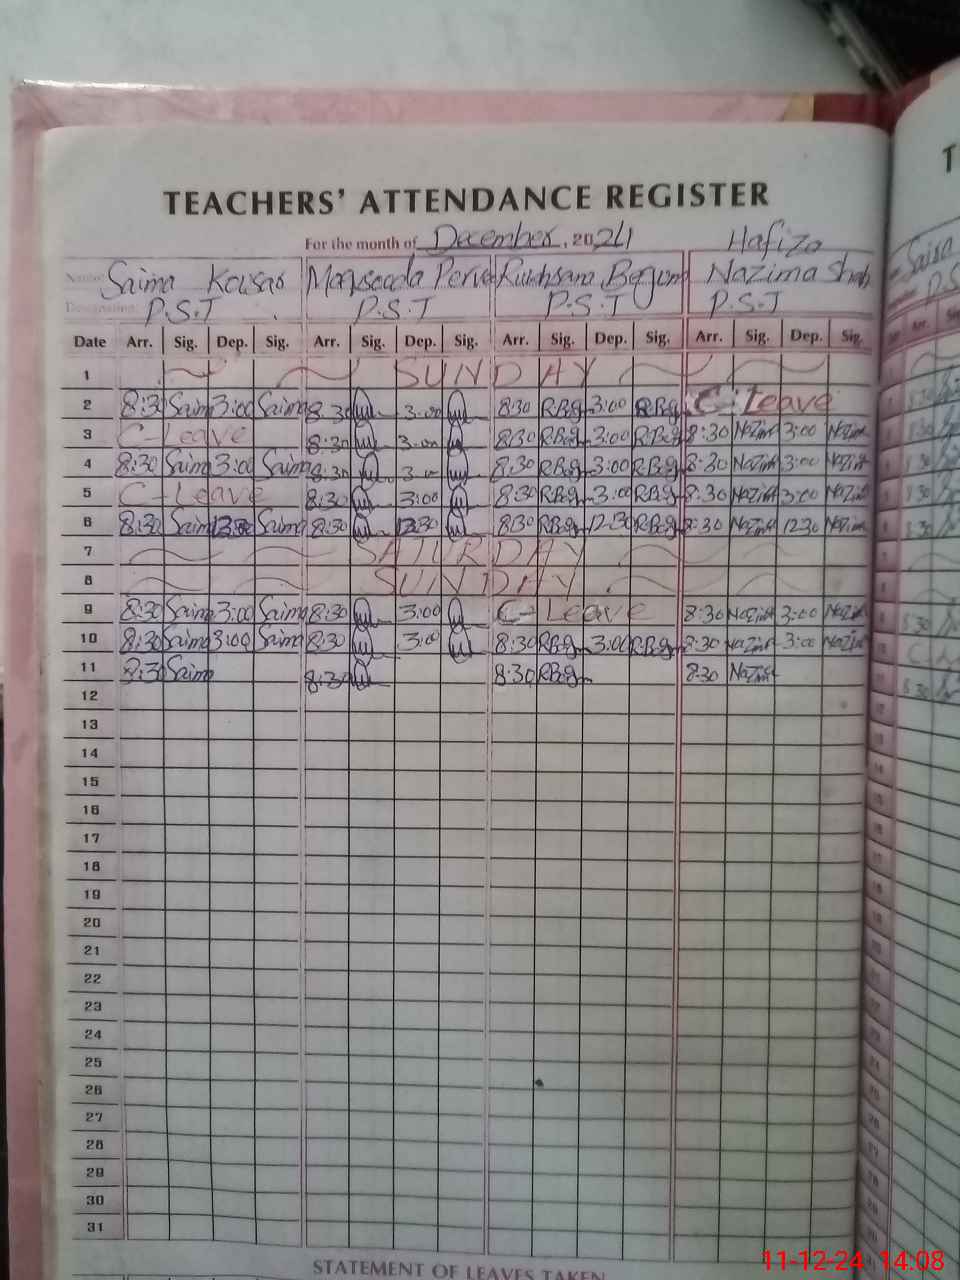 TEACHERS' ATTENDANCE REGISTER
For the month of December, 2024
Hafiza
Name Saima Kousar Maqsooda Perve Rukhsana Begum Nazima Shah
Designation P.S.T P.S.T P.S.T P.S.T
Date Arr. Sig. Dep. Sig. Arr. Sig. Dep. Sig. Arr. Sig. Dep. Sig. Arr. Sig. Dep. Sig.
1 SUNDAY
2 8:30 Saima 3:00 Saima 8:30 3:00 8:30 R.Beg 3:00 R.Beg C-Leave
3 C-Leave 8:30 3:00 8:30 R.Beg 3:00 R.Beg 8:30 Nazima 3:00 Nazima
4 8:30 Saima 3:00 Saima 8:30 3:00 8:30 R.Beg 3:00 R.Beg 8:30 Nazima 3:00 Nazima
5 C-Leave 8:30 3:00 8:30 R.Beg 3:00 R.Beg 8:30 Nazima 3:00 Nazima
6 8:30 Saima 12:30 Saima 8:30 12:30 8:30 R.Beg 12:30 R.Beg 8:30 Nazima 12:30 Nazima
7 SATURDAY
8 SUNDAY
9 8:30 Saima 3:00 Saima 8:30 3:00 C-Leave 8:30 Nazima 3:00 Nazima
10 8:30 Saima 3:00 Saima 8:30 3:00 8:30 R.Beg 3:00 R.Beg 8:30 Nazima 3:00 Nazima
11 8:30 Saima 8:30 8:30 R.Beg 8:30 Nazima
12
13
14
15
16
17
18
19
20
21
22
23
24
25
26
27
28
29
30
31
STATEMENT OF LEAVES TAKEN
11-12-24 14:08